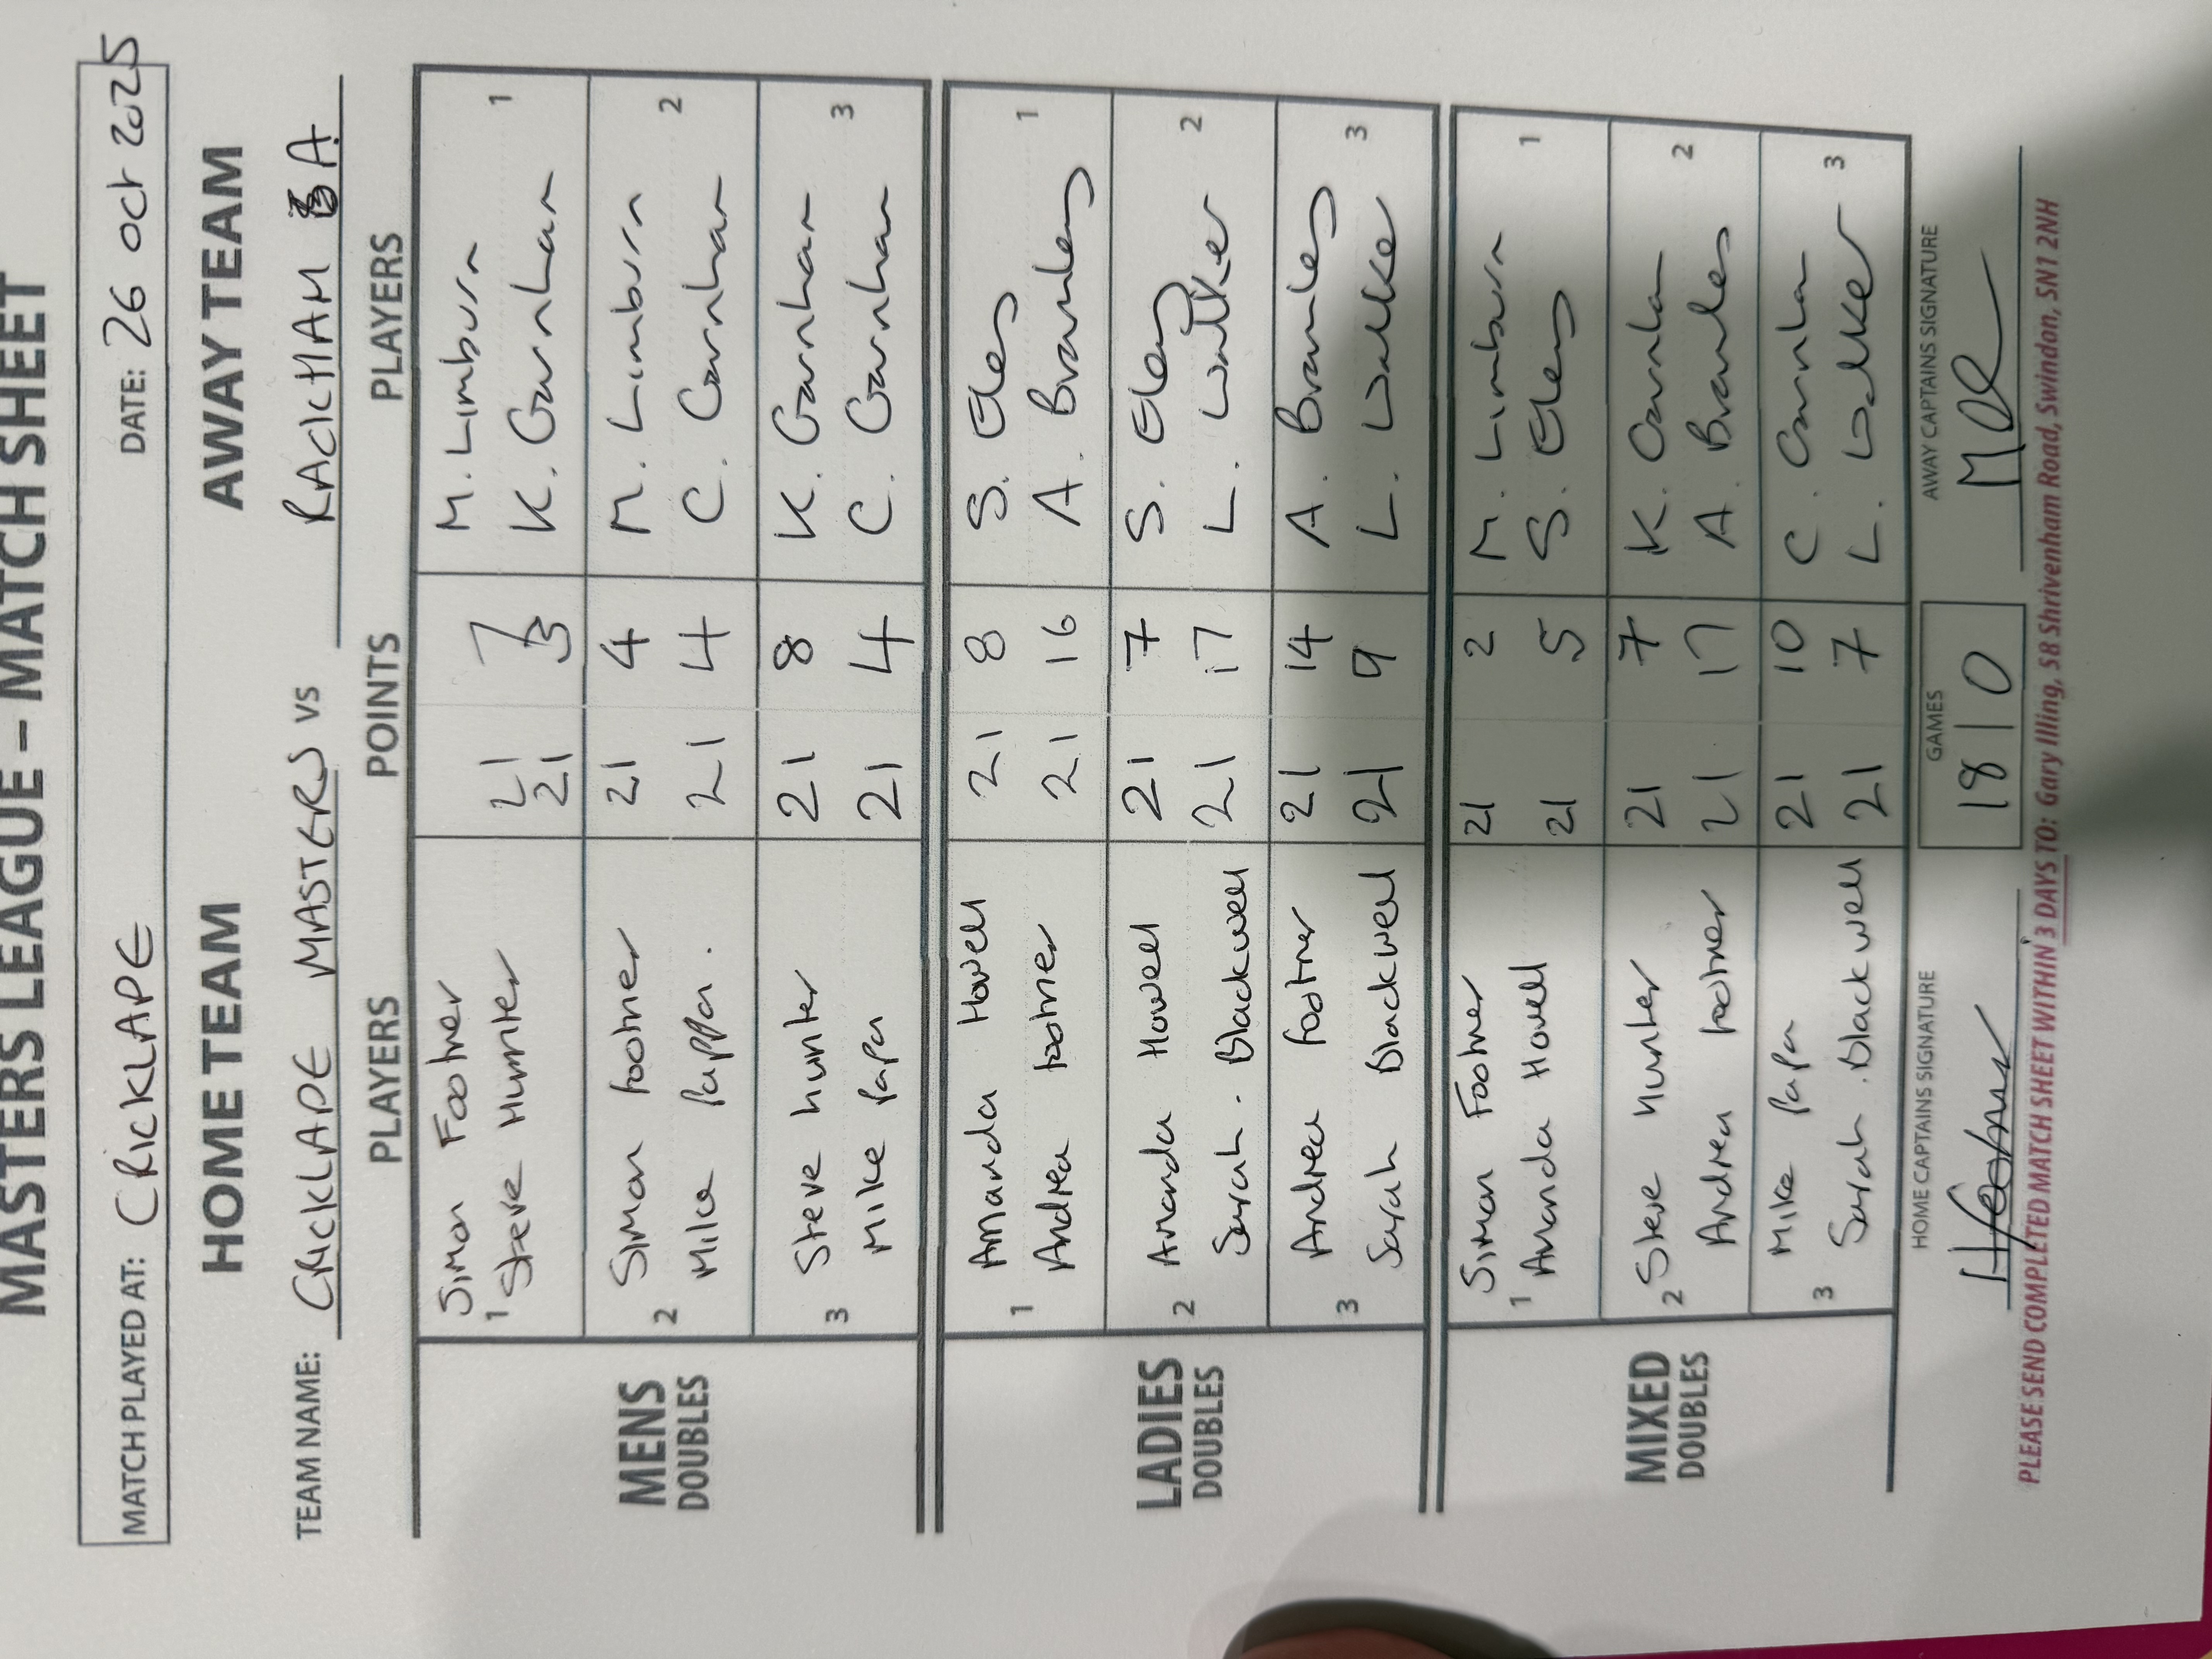 MASTERS LEAGUE – MATCH SHEET
MATCH PLAYED AT: CRICKLADE DATE: 26 Oct 2025
HOME TEAM AWAY TEAM
TEAM NAME: CRICKLADE MASTERS VS RACKHAM A
PLAYERS POINTS PLAYERS
MENS DOUBLES
1 Simon Footner 21 7 M. Limburn 1
Steve Hunter 21 3 K. Garnham
2 Simon Footner 21 4 M. Limburn 2
Mike Pappa. 21 4 C. Garnham
3 Steve Hunter 21 8 K. Garnham 3
Mike Papa 21 4 C. Garnham
LADIES DOUBLES
1 Amanda Howell 21 8 S. Eley 1
Andrea Footner 21 16 A. Bramley
2 Amanda Howell 21 7 S. Eley 2
Sarah. Blackwell 21 17 L. Walker
3 Andrea Footner 21 14 A. Bramley 3
Sarah Blackwell 21 9 L. Walker
MIXED DOUBLES
1 Simon Footner 21 2 M. Limburn 1
Amanda Howell 21 5 S. Eley
2 Steve Hunter 21 7 K. Garnham 2
Andrea Footner 21 17 A. Bramley
3 Mike Papa 21 10 C. Garnham 3
Sarah. Blackwell 21 7 L. Walker
HOME CAPTAINS SIGNATURE GAMES AWAY CAPTAINS SIGNATURE
18 | 0
PLEASE SEND COMPLETED MATCH SHEET WITHIN 3 DAYS TO: Gary Illing, 58 Shrivenham Road, Swindon, SN1 2NH